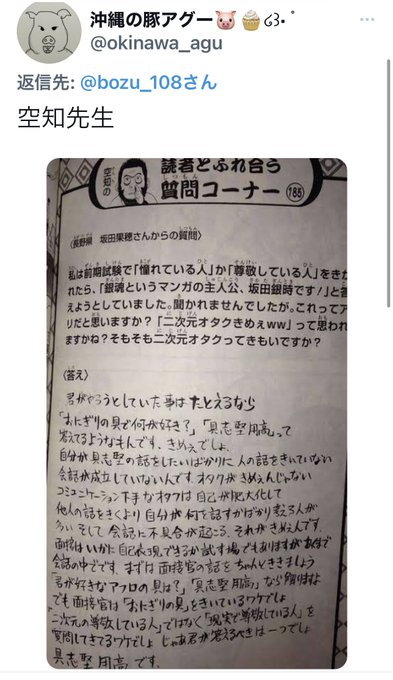 沖縄の豚アグー🐷🧁
@okinawa_agu
返信先: @bozu_108さん
空知先生
空知の
読者とふれ合う
質問コーナー 185
〈長野県 坂田果穂さんからの質問〉
私は前期試験で「憧れている人」か「尊敬している人」をきか
れたら、「銀魂というマンガの主人公、坂田銀時です!」と答
えようとしていました。聞かれませんでしたが。これってア
リだと思いますか?「二次元オタクきめぇww」って思われ
ますかね?そもそも二次元オタクってきもいですか?
〈答え〉
君がやろうとしていた事はたとえるなら
「おにぎりの具で何が好き?」「具志堅用高」って
答えてるようなもんです、きめぇでしょ。
自分が具志堅の話をしたいばかりに人の話をきいていない
会話が成立していないんです。オタクがきめぇんじゃない
コミュニケーション下手なオタクは自己が肥大化して
他人の話をきくより自分が何を話すかばかり考える人が
多い そして会話に不具合が起こる、それがきめぇんです。
面接はいかに自己表現できるか試す場でもありますがあくまで
会話の中でです。まずは面接官の話をちゃんとききましょう
「君が好きなアフロの具は?」「具志堅用高」なら
でも面接官は「おにぎりの具」をきいているワケでしょ
「二次元の尊敬している人」ではなく「現実で尊敬している人」を
質問してきてるワケでしょ じゃあ君が答えるべきは一つでしょ
具志堅用高です。